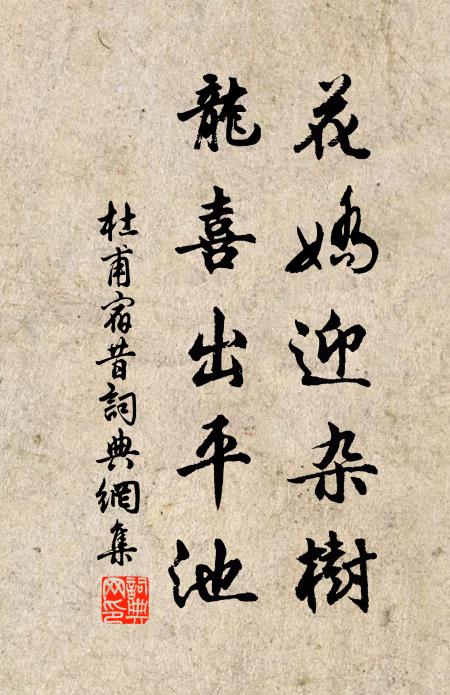 花嬌迎杂樹
龍喜出平池
杜甫宿昔詞典網集
詞典文印